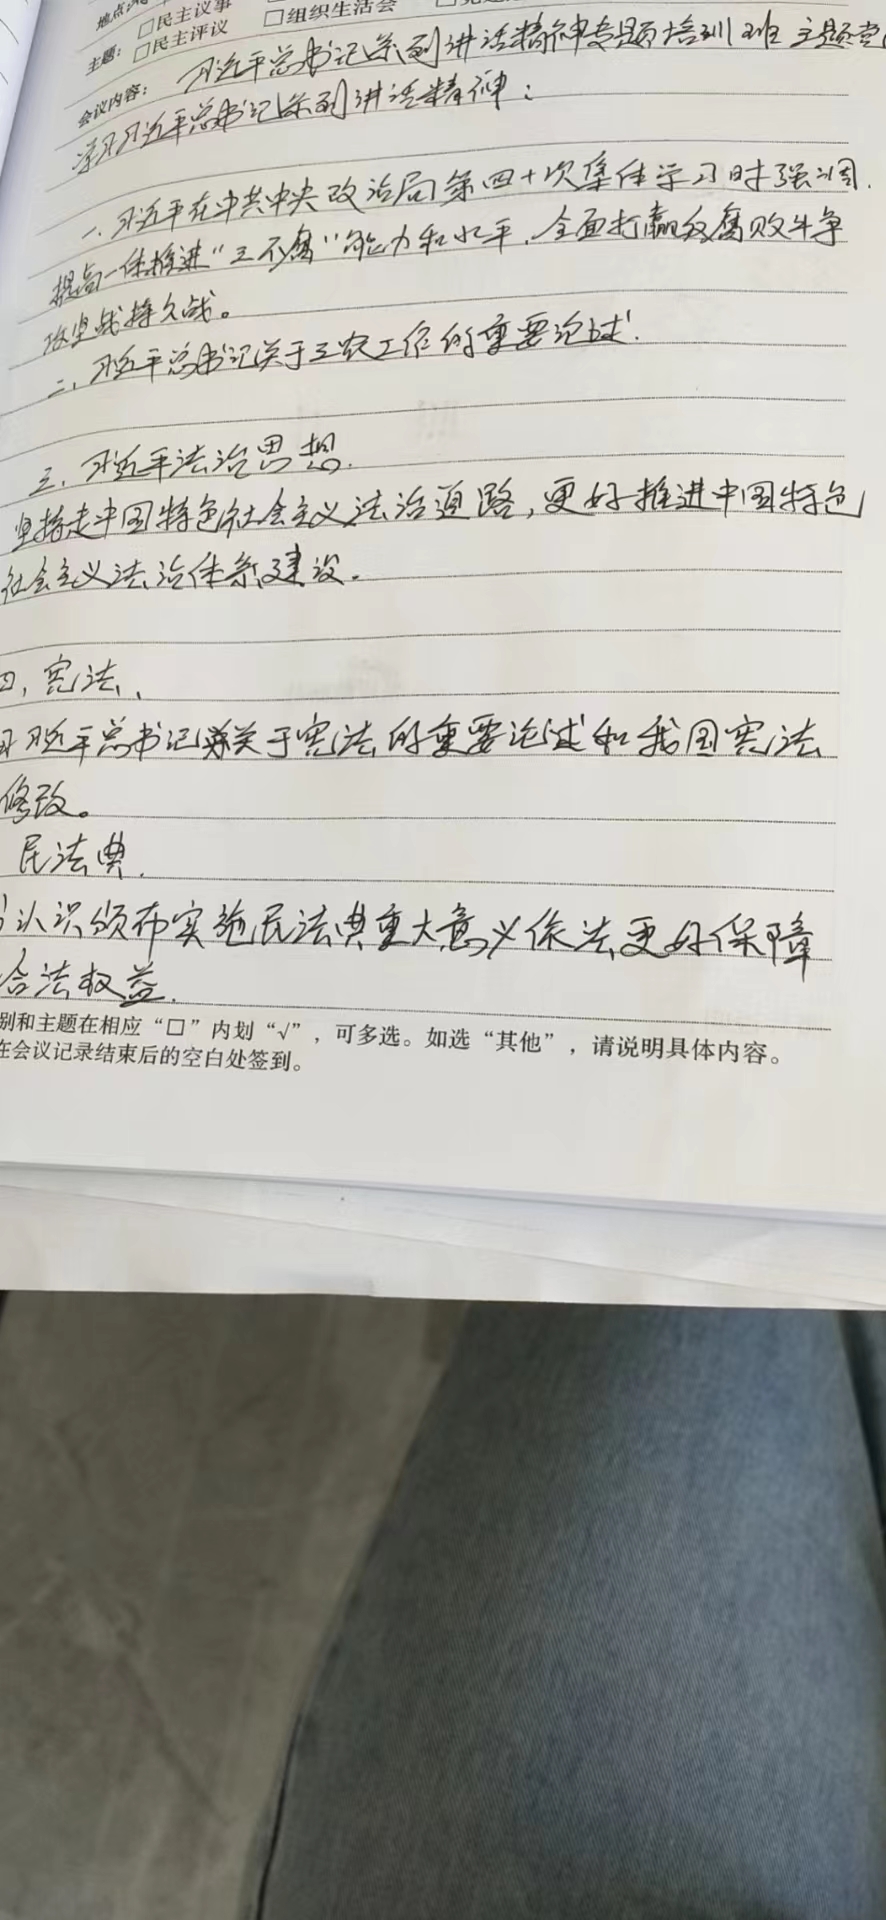 地点
□民主议事
□组织生活会
主题：
□民主评议
习近平总书记系列讲话精神专题培训班 主题党
会议内容：
学习习近平总书记系列讲话精神：
一、习近平在中共中央政治局第四十次集体学习时强调.
提高一体推进“三不腐”能力和水平，全面打赢反腐败斗争
攻坚战持久战。
二、习近平总书记关于三农工作的重要论述.
三、习近平法治思想.
坚持走中国特色社会主义法治道路，更好推进中国特色
社会主义法治体系建设.
四、宪法、
习近平总书记关于宪法的重要论述和我国宪法
修改。
民法典.
认识颁布实施民法典重大意义依法更好保障
合法权益.
别和主题在相应“□”内划“√”，可多选。如选“其他”，请说明具体内容。
在会议记录结束后的空白处签到。